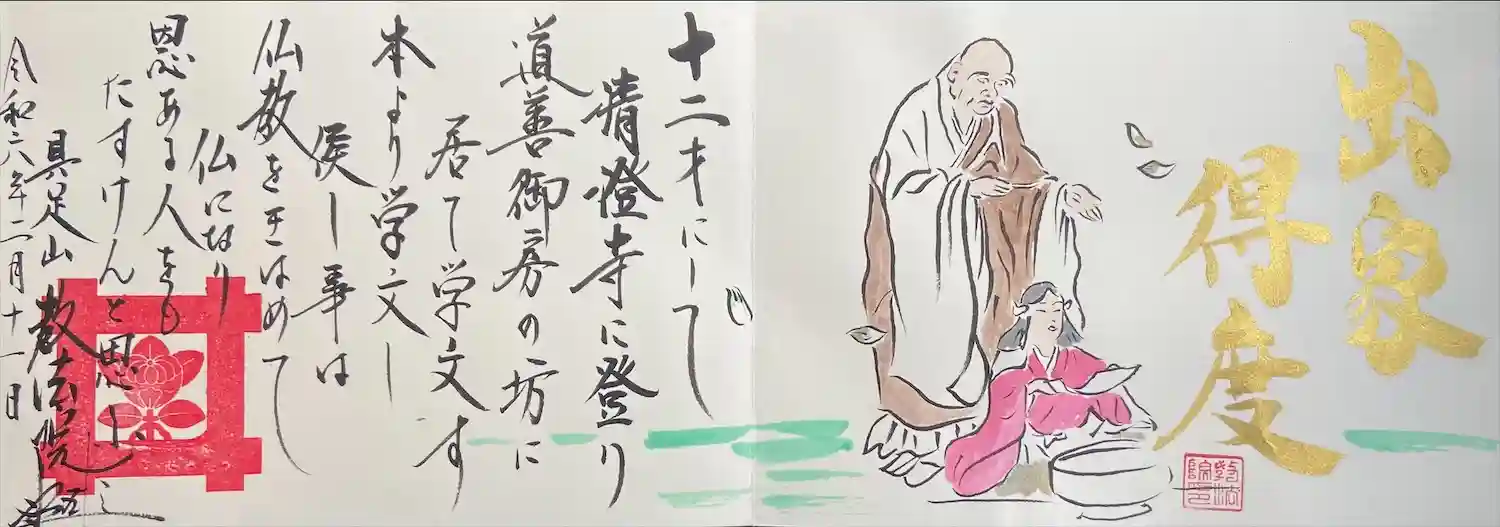 出家
得度
十二才にして
清澄寺に登り
道善御房の坊に
居て学文す
本より学文し
候し事は
仏教をきはめて
仏になり
恩ある人をも
たすけんと思ふ
具足山 教法院
令和六年二月十一日
教法院印